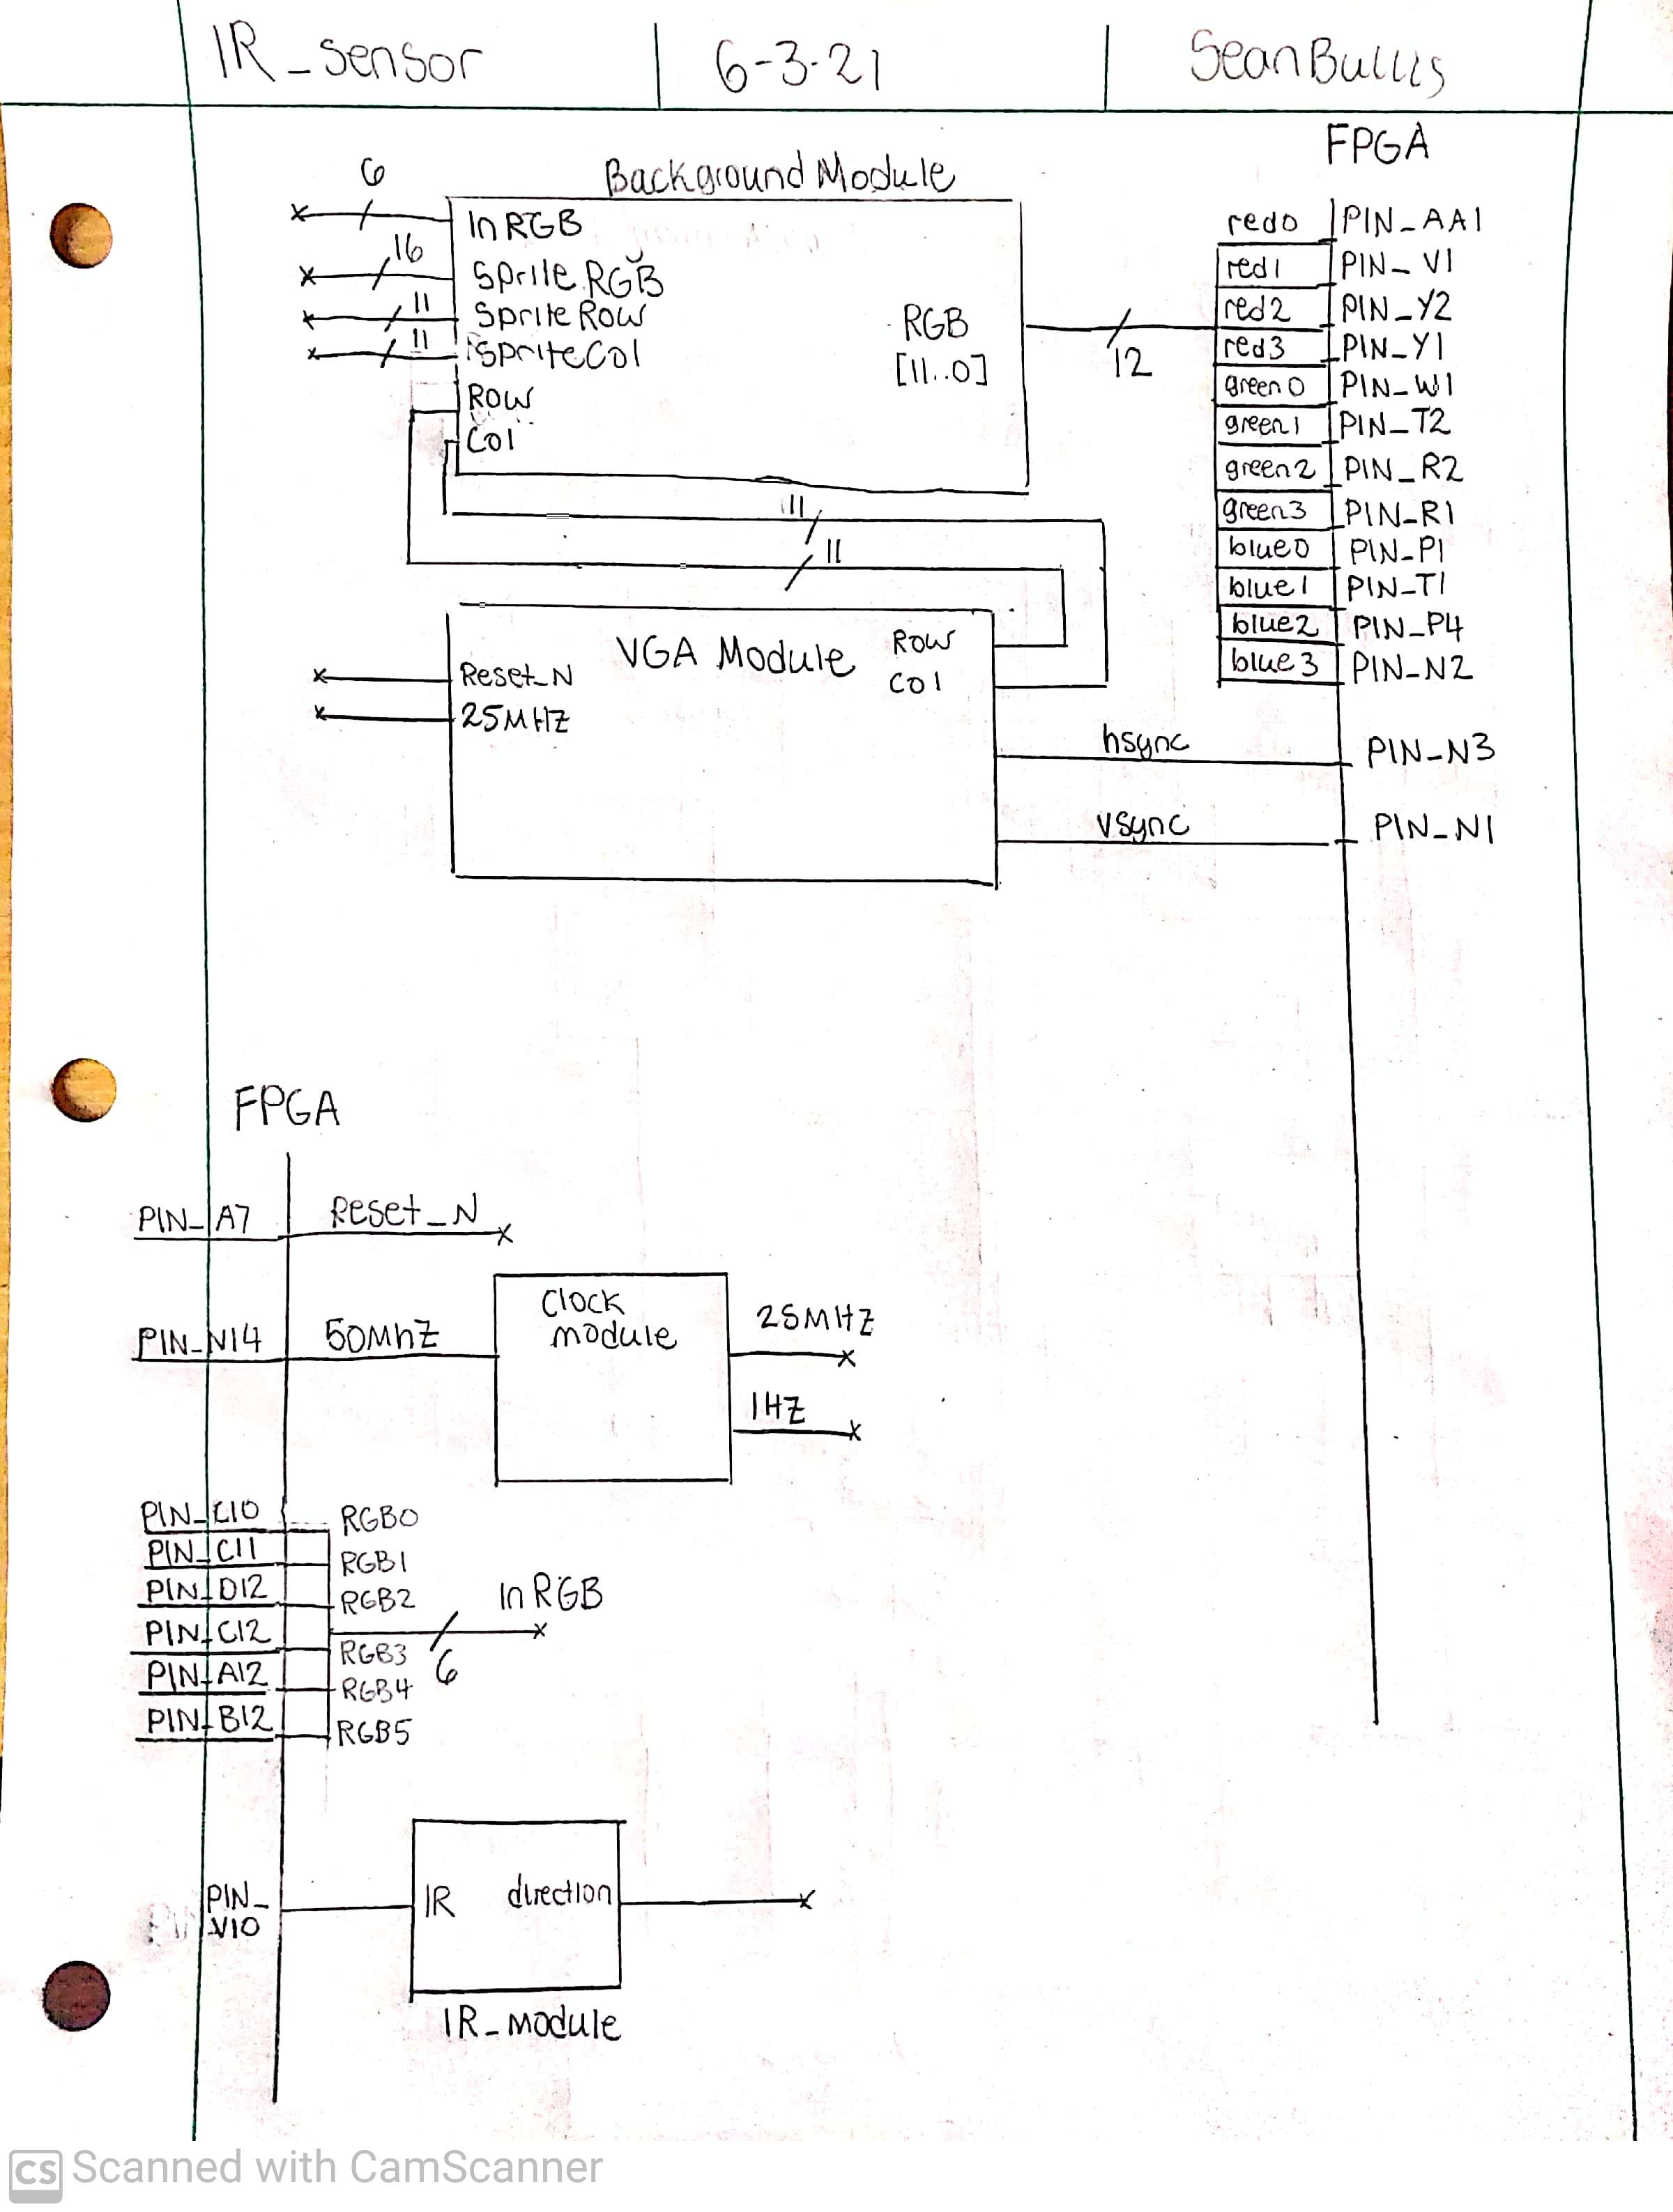 IR_sensor
6-3-21
Sean Bullis
FPGA
Background Module
6
In RGB
16
Sprite RGB
11
Sprite Row
11
Sprite Col
Row
Col
RGB
[11..0]
12
red0 PIN_AA1
red1 PIN_V1
red2 PIN_Y2
red3 PIN_Y1
green0 PIN_W1
green1 PIN_T2
green2 PIN_R2
green3 PIN_R1
blue0 PIN_P1
blue1 PIN_T1
blue2 PIN_P4
blue3 PIN_N2
11
11
VGA Module
Row
Col
Reset_N
25MHZ
hsync PIN_N3
vsync PIN_N1
FPGA
PIN_A7 Reset_N
PIN_N14 50MhZ
Clock
module
25MHZ
1HZ
PIN_C10 RGB0
PIN_C11 RGB1
PIN_D12 RGB2
In RGB
PIN_C12 RGB3
6
PIN_A12 RGB4
PIN_B12 RGB5
PIN_
V10
IR direction
IR_module
CS Scanned with CamScanner